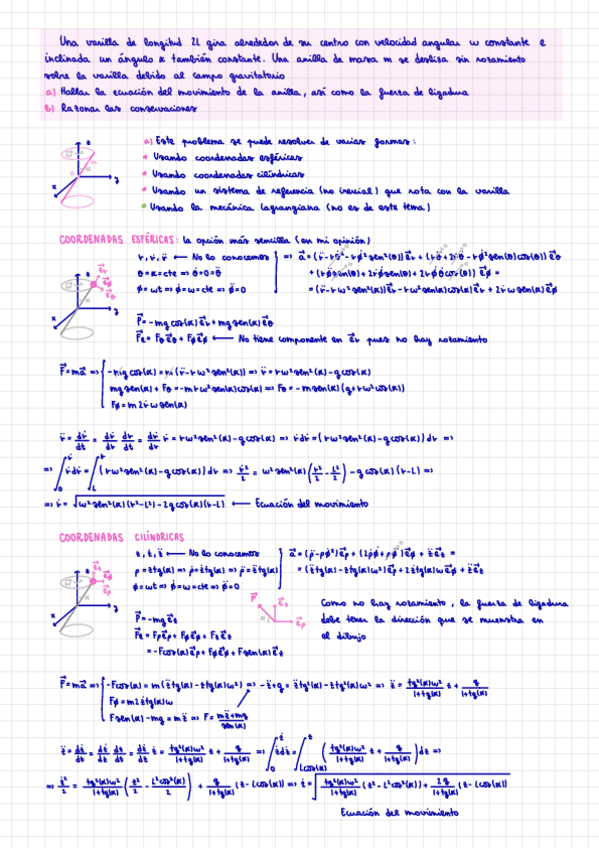 Una varilla de longitud 2L gira alrededor de su centro con velocidad angular ω constante e
inclinada un ángulo α también constante. Una anilla de masa m se desliza sin rozamiento
sobre la varilla debido al campo gravitatorio
a) Hallar la ecuación del movimiento de la anilla, así como la fuerza de ligadura
b) Razonar las conservaciones
a) Este problema se puede resolver de varias formas:
* Usando coordenadas esféricas
* Usando coordenadas cilíndricas
* Usando un sistema de referencia (no inercial) que rota con la varilla
* Usando la mecánica Lagrangiana (no es de este tema)
COORDENADAS ESFÉRICAS: la opción más sencilla (en mi opinión)
r, ṙ, r̈ ← No lo conocemos
θ = α = cte ⇒ θ̇ = 0 = θ̈
φ = ωt ⇒ φ̇ = ω = cte ⇒ φ̈ = 0
a⃗ = (r̈ - rθ̇² - rφ̇² sen²(θ)) e⃗r + (rθ̈ + 2ṙθ̇ - rφ̇² sen(θ) cos(θ)) e⃗θ
+ (rφ̈ sen(θ) + 2ṙφ̇ sen(θ) + 2rθ̇φ̇ cos(θ)) e⃗φ =
= (r̈ - rω² sen²(α)) e⃗r - rω² sen(α) cos(α) e⃗θ + 2ṙω sen(α) e⃗φ
P⃗ = -mg cos(α) e⃗r + mg sen(α) e⃗θ
F⃗e = Fθ e⃗θ + Fφ e⃗φ ← No tiene componente en e⃗r pues no hay rozamiento
F⃗ = ma⃗ ⇒
-mg cos(α) = m(r̈ - rω² sen²(α)) ⇒ r̈ = rω² sen²(α) - g cos(α)
mg sen(α) + Fθ = -mrω² sen(α) cos(α) ⇒ Fθ = -m sen(α) (g + rω² cos(α))
Fφ = m 2ṙω sen(α)
r̈ = dṙ/dt = dṙ/dr dr/dt = dṙ/dr ṙ = rω² sen²(α) - g cos(α) ⇒ ṙdṙ = (rω² sen²(α) - g cos(α)) dr ⇒
⇒ ∫₀^ṙ ṙdṙ = ∫_L^r (rω² sen²(α) - g cos(α)) dr ⇒ ṙ²/2 = ω² sen²(α) (r²/2 - L²/2) - g cos(α) (r-L) ⇒
⇒ ṙ = √(ω² sen²(α) (r²-L²) - 2g cos(α) (r-L)) ← Ecuación del movimiento
COORDENADAS CILÍNDRICAS
z, ż, z̈ ← No lo conocemos
ρ = z tg(α) ⇒ ρ̇ = ż tg(α) ⇒ ρ̈ = z̈ tg(α)
φ = ωt ⇒ φ̇ = ω = cte ⇒ φ̈ = 0
a⃗ = (ρ̈ - ρφ̇²) e⃗ρ + (2ρ̇φ̇ + ρφ̈) e⃗φ + z̈ e⃗z =
= (z̈ tg(α) - z tg(α) ω²) e⃗ρ + 2ż tg(α) ω e⃗φ + z̈ e⃗z
P⃗ = -mg e⃗z
F⃗e = Fρ e⃗ρ + Fφ e⃗φ + Fz e⃗z
= -F cos(α) e⃗ρ + Fφ e⃗φ + F sen(α) e⃗z
Como no hay rozamiento, la fuerza de ligadura
debe tener la dirección que se muestra en
el dibujo
F⃗ = ma⃗ ⇒
-F cos(α) = m(z̈ tg(α) - z tg(α) ω²) ⇒ -z̈ + g = z̈ tg(α) - z tg²(α) ω² ⇒ z̈ = tg²(α)ω²/1+tg(α) z + g/1+tg(α)
Fφ = m 2ż tg(α) ω
F sen(α) - mg = m z̈ ⇒ F = mz̈+mg/sen(α)
z̈ = dż/dt = dż/dz dz/dt = dż/dz ż = tg²(α)ω²/1+tg(α) z + g/1+tg(α) ⇒ ∫₀^ż żdż = ∫_Lcos(α)^z (tg²(α)ω²/1+tg(α) z + g/1+tg(α)) dz ⇒
⇒ ż²/2 = tg²(α)ω²/1+tg(α) (z²/2 - L²cos²(α)/2) + g/1+tg(α) (z-Lcos(α)) ⇒ ż = √(tg²(α)ω²/1+tg(α) (z²-L²cos²(α)) + 2g/1+tg(α) (z-Lcos(α)))
Ecuación del movimiento